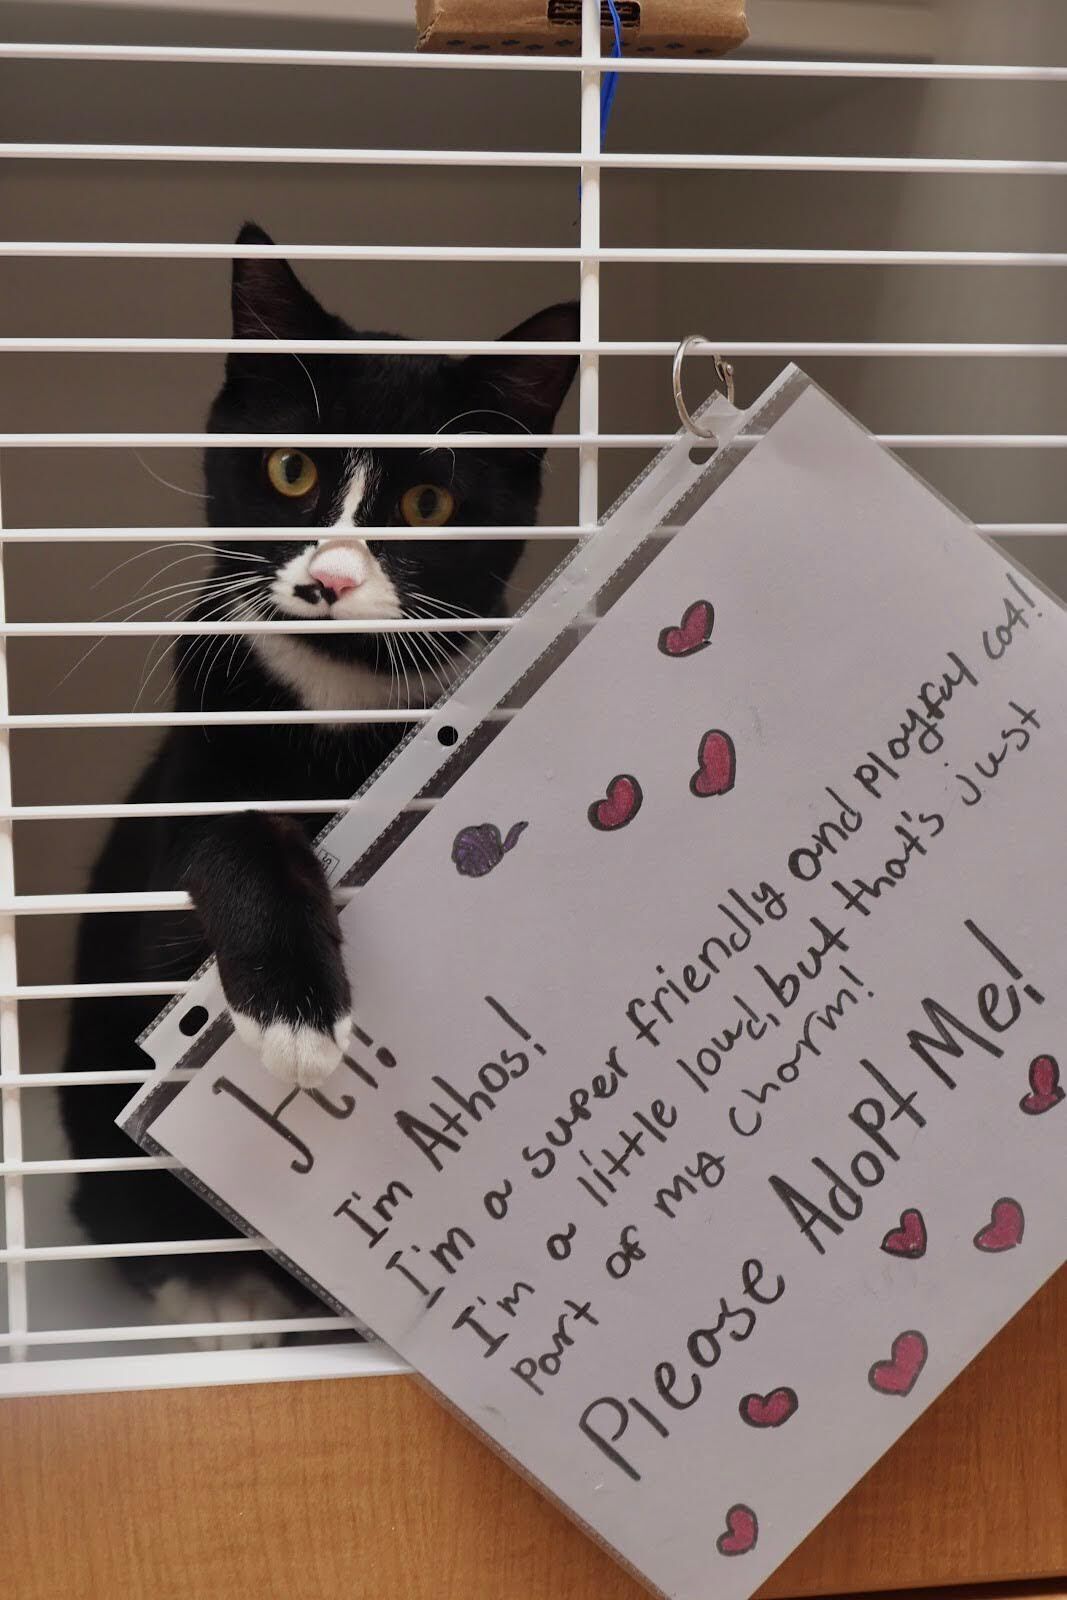 Hi!
I'm Athos!
I'm a super friendly and playful cat!
I'm a little loud, but that's just
part of my charm!
Please Adopt Me!